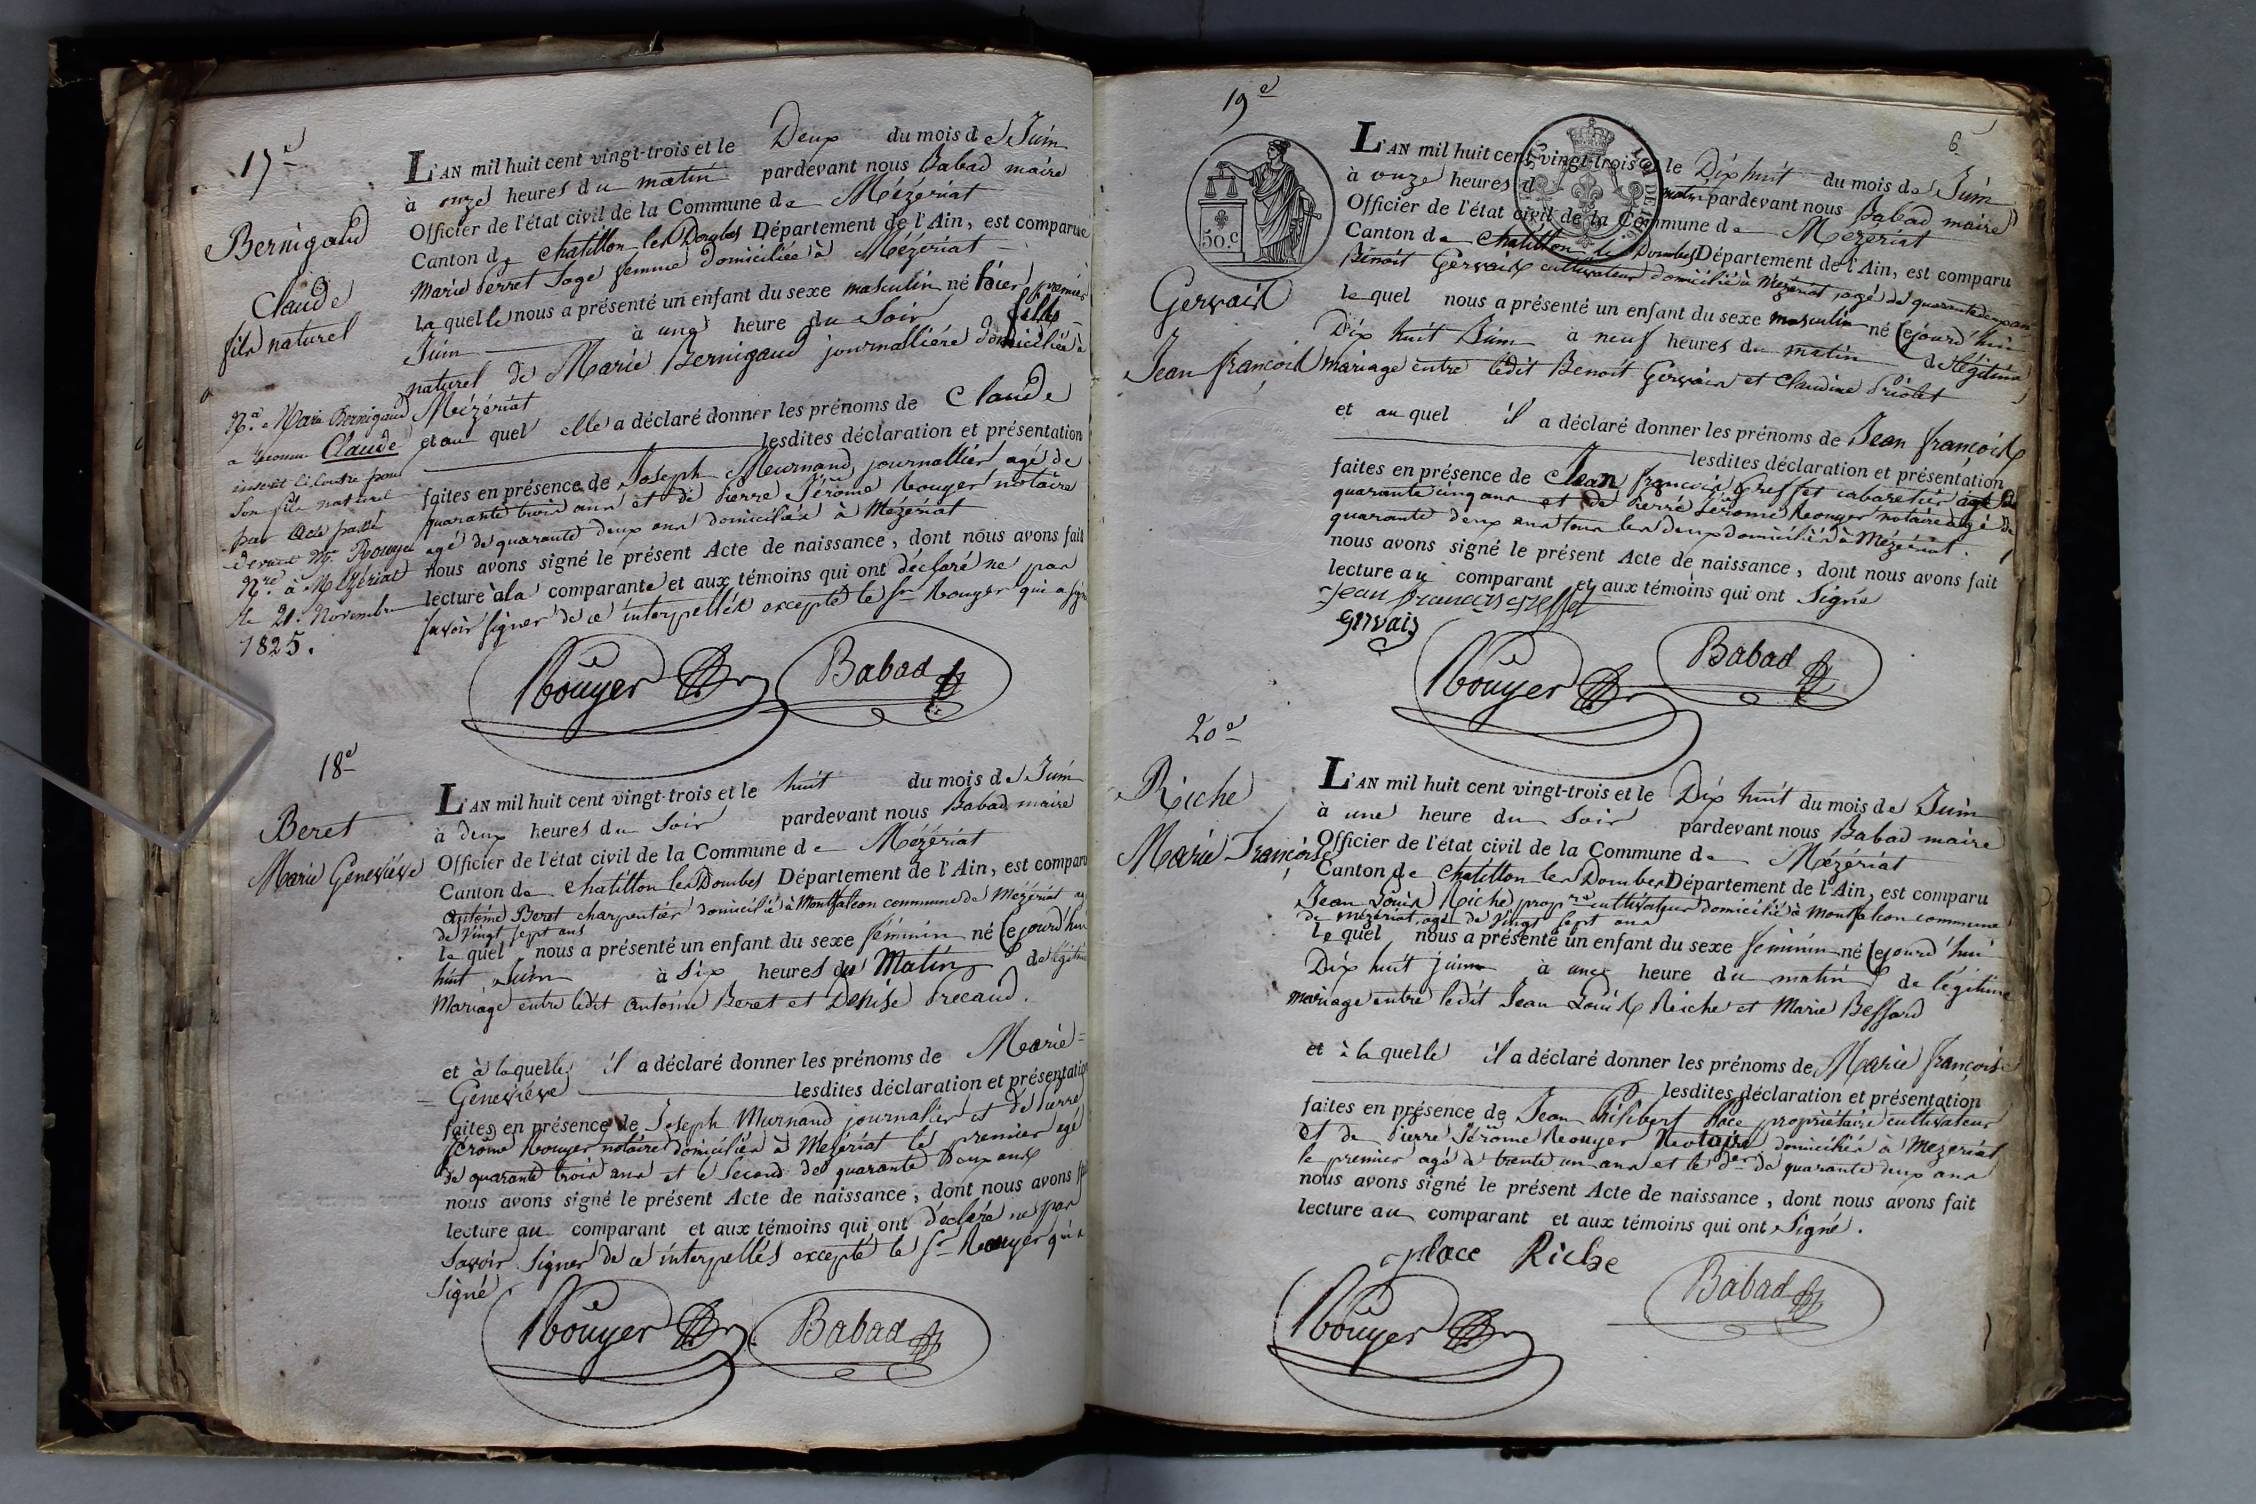 17e
Bernigaud
Claude
fils naturel
Nta Marie Bernigaud
a reconnu Claude
inscrit ci contre pour
son fils naturel
par acte passé
devant Me Rouyer
Nre à Mézériat
le 21 Novembre
1825.
L'AN mil huit cent vingt-trois et le Deux du mois de Juin
à onze heures du matin pardevant nous Babad maire
Officier de l'état civil de la Commune de Mézériat
Canton de Chatillon les Dombes Département de l'Ain, est comparue
Marie Perret Sage femme domiciliée à Mézériat
laquelle nous a présenté un enfant du sexe masculin né hier premier
Juin à une heure du Soir fils
naturel de Marie Bernigaud journallière domiciliée à
Mézériat
et au quel elle a déclaré donner les prénoms de Claude
lesdites déclaration et présentation
faites en présence de Joseph Meurnand, journallier agé de
quarante trois ans et de Pierre Jérôme Rouyer notaire
agé de quarante deux ans domiciliés à Mézériat
nous avons signé le présent Acte de naissance, dont nous avons fait
lecture à la comparante et aux témoins qui ont déclaré ne pas
savoir signer de ce interpellés excepté le Sr Rouyer qui a signé
Rouyer Babad
18e
Beret
Marie Geneviève
L'AN mil huit cent vingt-trois et le huit du mois de Juin
à deux heures du Soir pardevant nous Babad maire
Officier de l'état civil de la Commune de Mézériat
Canton de Chatillon les Dombes Département de l'Ain, est comparu
Antoine Beret charpentier domicilié à Montfalcon commune de Mézériat agé
de vingt sept ans
le quel nous a présenté un enfant du sexe féminin né Cejourd'hui
huit Juin à six heures du Matin de légitime
Mariage entre ledit Antoine Beret et Denise Precaud.
et à laquelle il a déclaré donner les prénoms de Marie=
=Geneviève lesdites déclaration et présentation
faites en présence de Joseph Murnand journalier et de Pierre
Jérôme Rouyer notaire domiciliés à Mézériat le premier agé
de quarante trois ans et le Second de quarante deux ans
nous avons signé le présent Acte de naissance, dont nous avons fait
lecture au comparant et aux témoins qui ont déclaré ne pas
Savoir Signer de ce interpellés excepté le Sr Rouyer qui a
Signé
Rouyer Babad
19e
6
50.c
Gervais
Jean françois
L'AN mil huit cent vingt-trois et le Dix huit du mois de Juin
à onze heures du matin pardevant nous Babad maire
Officier de l'état civil de la Commune de Mézériat
Canton de Chatillon les Dombes Département de l'Ain, est comparu
Benoit Gervais cultivateur domicilié à Mézériat, agé de quarante deux ans
le quel nous a présenté un enfant du sexe masculin né Cejourd'hui
Dix huit Juin à neuf heures du matin de légitime
mariage entre ledit Benoit Gervais et Claudine Priolet
et au quel il a déclaré donner les prénoms de Jean françois
lesdites déclaration et présentation
faites en présence de Jean françois Greffet cabaretier agé de
quarante cinq ans et de Pierre Jérôme Rouyer notaire agé de
quarante deux ans tous les deux domiciliés à Mézériat.
nous avons signé le présent Acte de naissance, dont nous avons fait
lecture au comparant et aux témoins qui ont Signé
Jean francois greffet
gervais
Rouyer Babad
20e
Riche
Marie Françoise
L'AN mil huit cent vingt-trois et le Dix huit du mois de Juin
à une heure du Soir pardevant nous Babad maire
Officier de l'état civil de la Commune de Mézériat
Canton de Chatillon les Dombes Département de l'Ain, est comparu
Jean Louis Riche propre cultivateur domicilié à Montfalcon commune
de Mézériat, agé de vingt sept ans
le quel nous a présenté un enfant du sexe féminin né Cejourd'hui
Dix huit juin à une heure du matin de légitime
mariage entre ledit Jean Louis Riche et Marie Bessard
et à la quelle il a déclaré donner les prénoms de Marie françoise
lesdites déclaration et présentation
faites en présence de Jean Philibert Place propriétaire cultivateur
et de Pierre Jérôme Rouyer Notaire domiciliés à Mézériat
le premier agé de trente un ans et le der de quarante deux ans
nous avons signé le présent Acte de naissance, dont nous avons fait
lecture au comparant et aux témoins qui ont Signé.
place Riche
Rouyer Babad